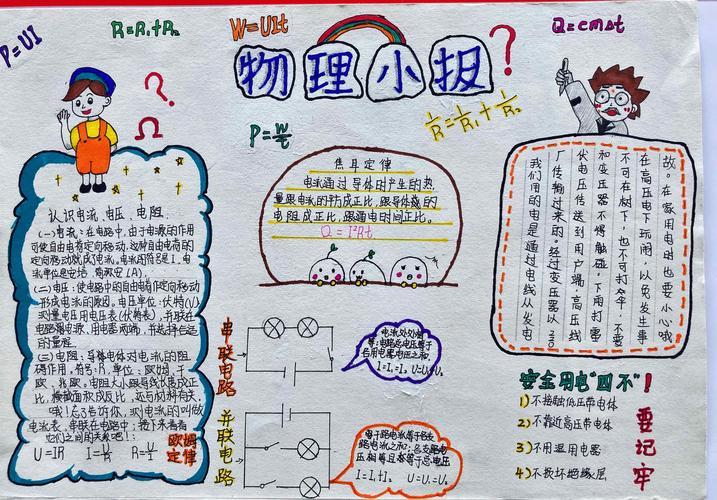 P=UI
R=R₁+R₂
W=UIt
Q=cmΔt
物理小报
?
?
Ω
1/R=1/R₁+1/R₂
P=W/t
认识电流、电压、电阻
(一)电流:在电路中,由于电源的作用
可使自由电荷定向移动,这种自由电荷的
定向移动就成了电流。电流的符号是I,电
流单位是安培,简称安(A)。
(二)电压:使电路中的自由电荷定向移动
形成电流的原因,电压单位:伏特(V),
测量电压用电压表(伏特表),并联在
电路
用电器两端,
的量程.
(三)电阻:导体对电流的阻
碍作用,符号:R,单位:欧姆,千
欧,兆欧,电阻大小跟导线长度成正
比,横截面积成反比,还与材料有关。
哦!忘了告诉你,测电流的叫做
电流表,串联在电路中;接下来看看
它们之间的关系吧!:
U=IR I=U/R R=U/I
欧姆
定律
焦耳定律
电流通过导体时产生的热
量跟电流的平方成正比,跟导体的
电阻成正比,跟通电时间正比。
Q=I²Rt
串联电路
电流处处相
等;电路总电压等于
各用电器电压之和。
I=I₁=I₂ U=U₁+U₂
并联电路
干路电流等于各支
路电流之和;各支路电
压相等且都等于总电压
I=I₁+I₂ U=U₁=U₂
我们用的电是通过电线从发电
厂传输过来的。经过变压器以220
伏电压传送到用户端,高压线
和变压器不得触碰,下雨打雷
不可在树下,也不可打伞,不要
在高压电下玩闹,以免发生事
故。在家用电时也要小心哦
安全用电"四不"!
1)不接触低压带电体
2)不靠近高压带电体
3)不用湿用电器
4)不损坏绝缘层
要记牢